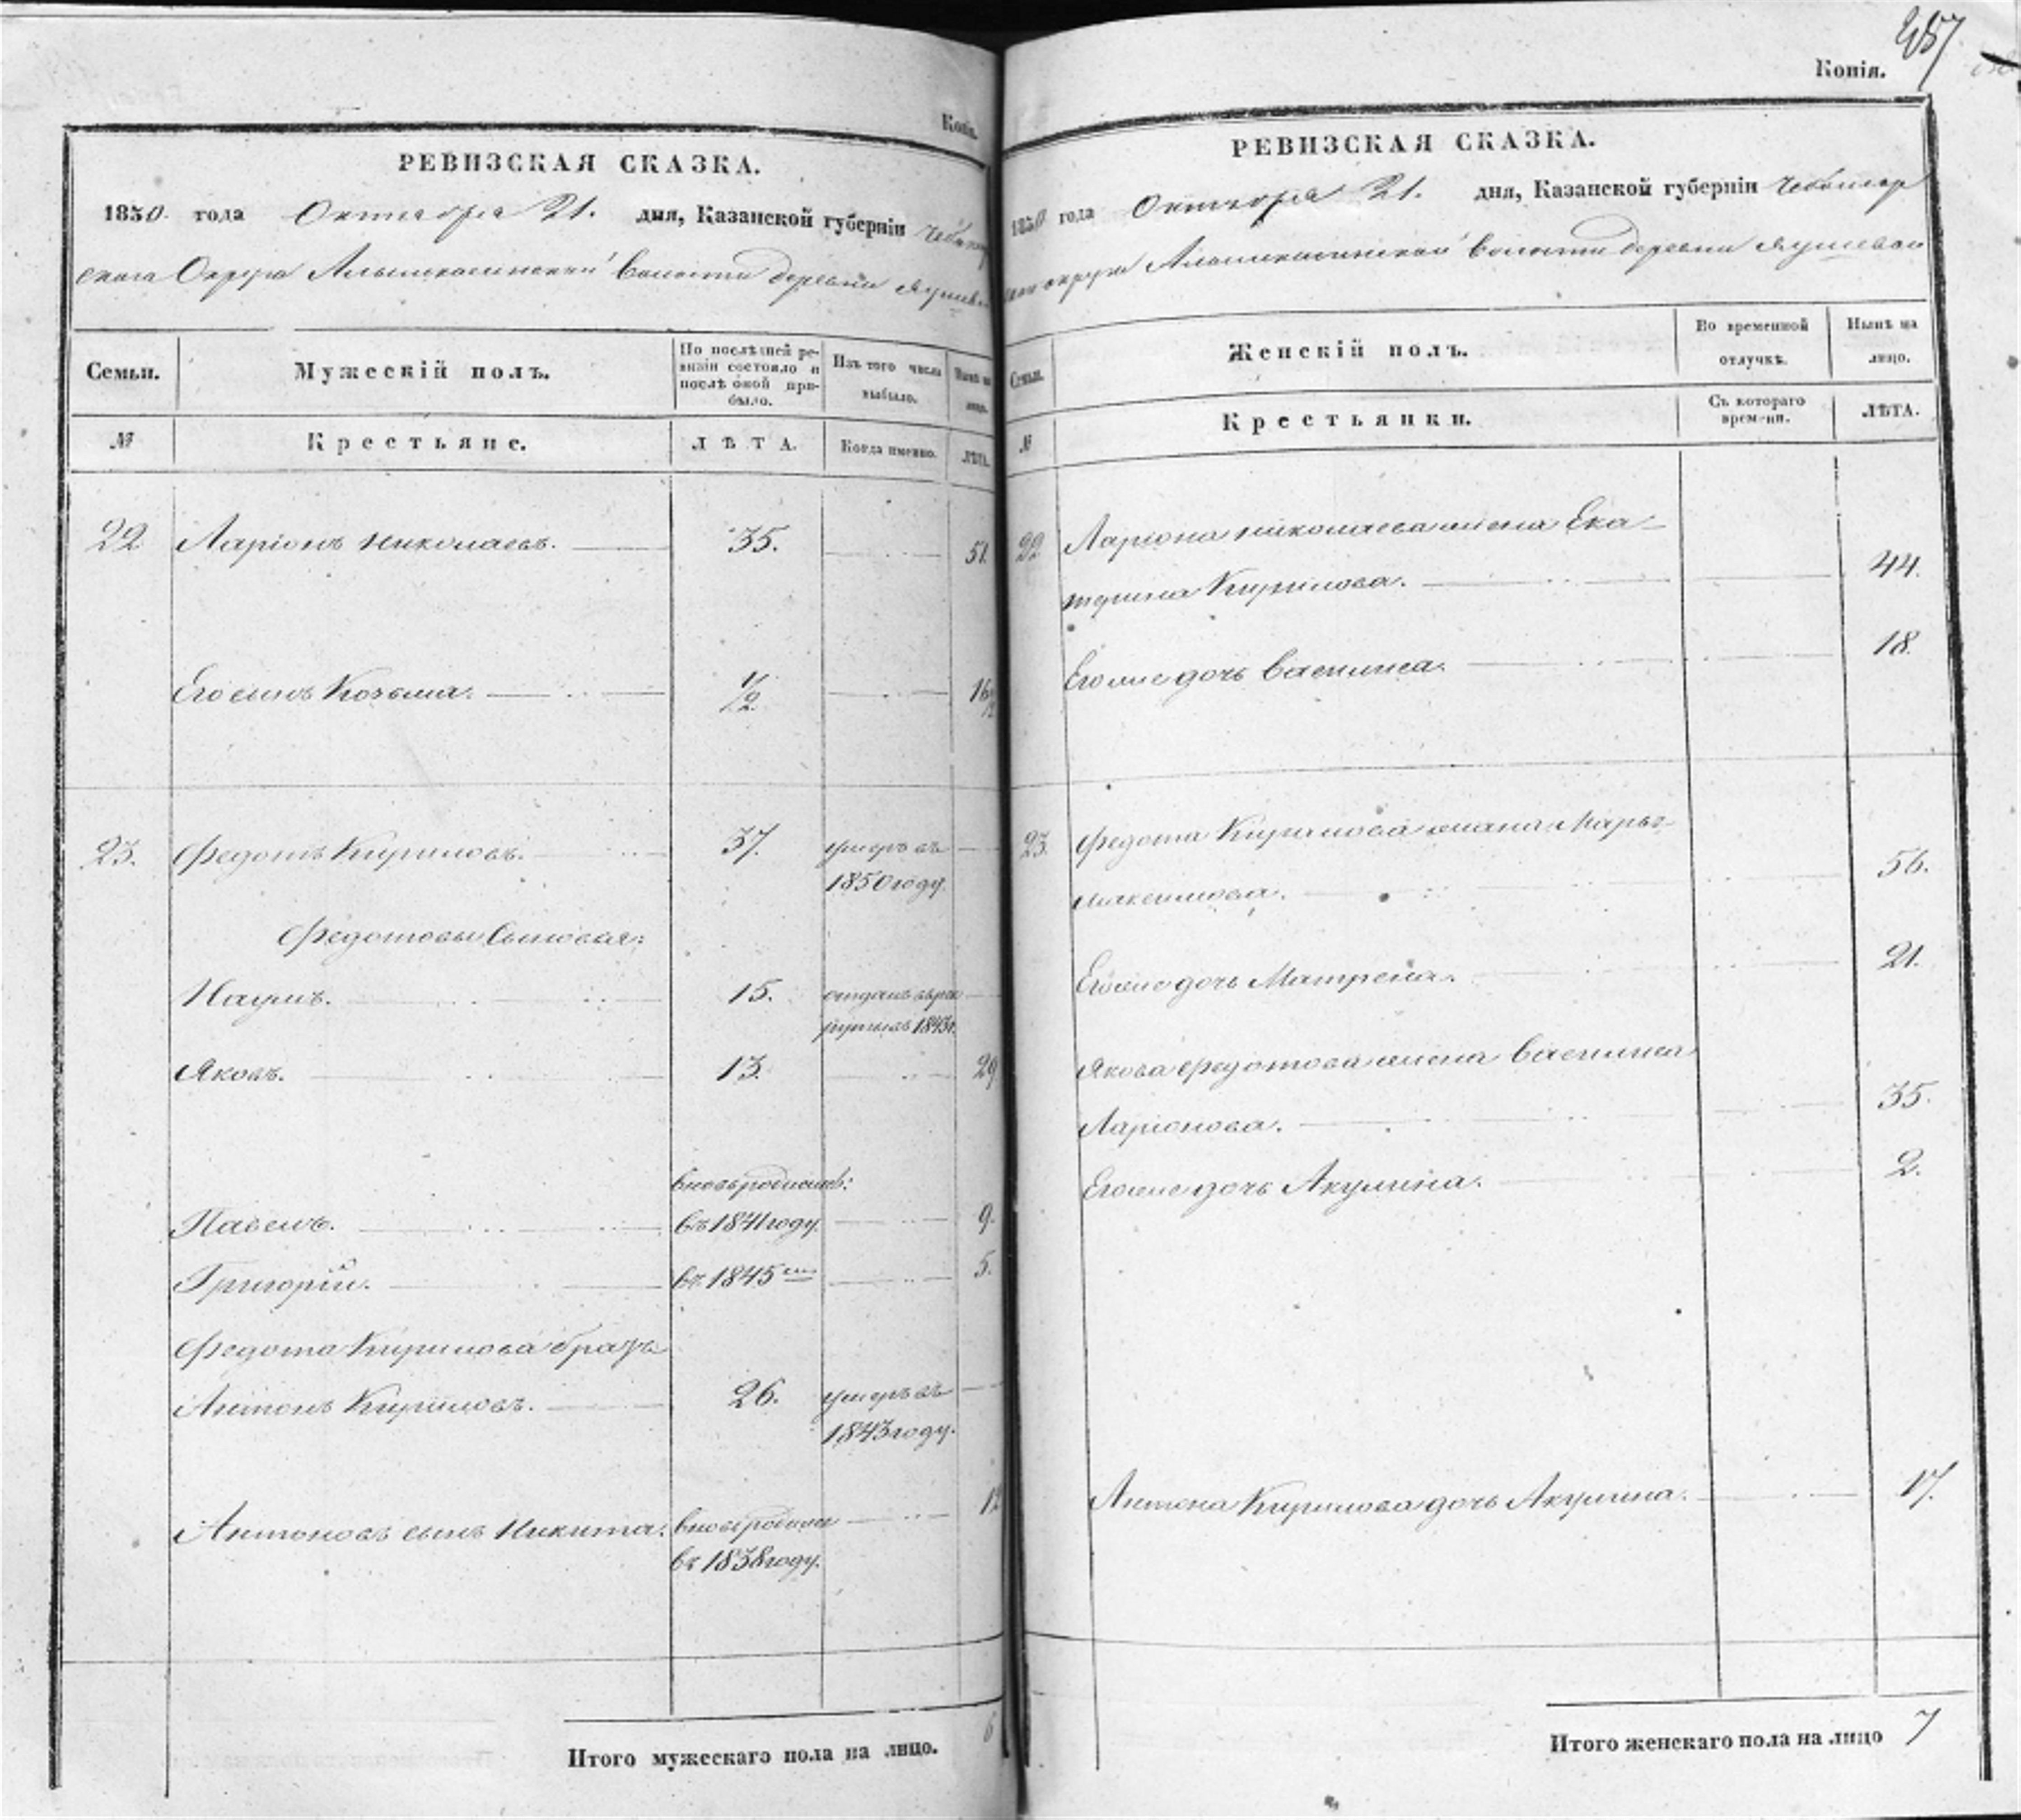 Копія.
РЕВИЗСКАЯ СКАЗКА.
1850 года Октября 21. дня, Казанской губерніи Чебоксар
скаго Округа Алымкасинской Волости деревни Яушева
Семьи. Мужескій полъ. По послѣдней ре-
визіи состояло и
послѣ оной при-
было. Изъ того числа
выбыло. Нынѣ на
лицо.
№ Крестьяне. ЛѢТА. Когда именно. ЛѢТА.
22 Ларіонъ Николаевъ. 35. 51.
Его сынъ Козьма. 1/2 16 1/2
23. Федотъ Кириловъ. 37. умеръ въ
1850 году.
Федотовы Сыновья:
Наумъ. 15. отданъ въ рек
руты въ 1843 г.
Яковъ. 13. 29
вновь рожденъ:
Павелъ. въ 1841 году. 9.
Григорій. въ 1845 5.
Федота Кирилова братъ
Антонъ Кириловъ. 26. умеръ въ
1843 году.
Антоновъ сынъ Никита. вновь рожден 12
въ 1838 году.
Итого мужескаго пола на лицо. 6
Копія. 257
РЕВИЗСКАЯ СКАЗКА.
1850 года Октября 21. дня, Казанской губерніи Чебоксар
округа Алымкасинской Волости деревни Яушевой
Семьи. Женскій полъ. Во временной
отлучкѣ. Нынѣ на
лицо.
№ Крестьянки. Съ котораго
времени. ЛѢТА.
22 Ларіона Николаева жена Ека-
терина Кирилова. 44.
Его же дочь Васили́са. 18.
23. Федота Кирилова жена Марья
Максимова. 56.
Его же дочь Матрена. 21.
Якова Федотова жена Василиса
Ларіонова. 35.
Его же дочь Акулина. 2.
Антона Кирилова дочь Акулина. 17.
Итого женскаго пола на лицо 7